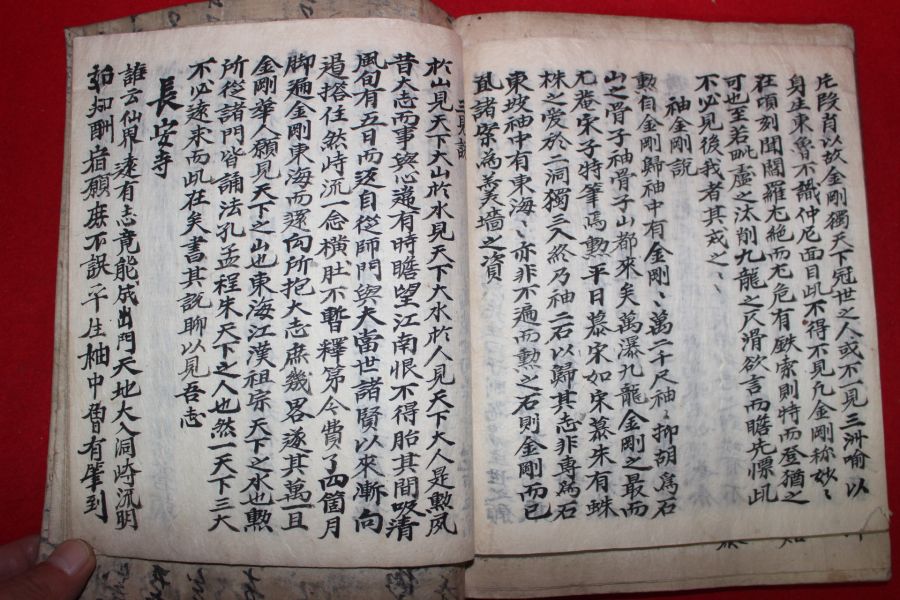 片段肖以故金剛獨天下冠世之人或不一見三洲喻以
身生東魯不識仲尼面目此不得不見凡金剛称妙〻
在頃刻閶闔羅尤絶而尤危有鉄索則特而登猶之
可也至若毗盧之汰削九龍之尺滑欲言而瞻先慄此
不必見後我者其戒之〻
袖金剛說
勲自金剛歸袖中有金剛〻萬二千尺袖〻抑胡爲石
山之骨子袖骨子山都來矣萬瀑九龍金剛之最而
尤菴宋子特筆焉勲平日慕宋如宋慕朱有蛛
株之愛於二洞獨三入終乃袖二石以歸其志非專爲石
東坡袖中有東海〻亦非不遍而勲之石則金剛而已
虱諸案爲羹墻之資
三見說
於山見天下大山於水見天下大水於人見天下大人是勲夙
昔大志而事與心違有時瞻望江南恨不得胎其間吸清
風旬有五日而返自從師門與夫當世諸賢以來漸向
邊搭住然時流一念橫肚不暫釋第今費了四箇月
脚遍金剛東海而遂向所抱大志庶幾畧遂其萬一且
金剛華人願見天下之山也東海江漢祖宗天下之水也勲
所從諸門皆誦法孔孟程朱天下之人也然一天下三大
不必遠求而此在矣書其說聊以見吾志
長安寺
誰云仙界遠有志竟能成出門天地大入洞峙流明
酬宿願庶不誤平生袖中曾有筆到